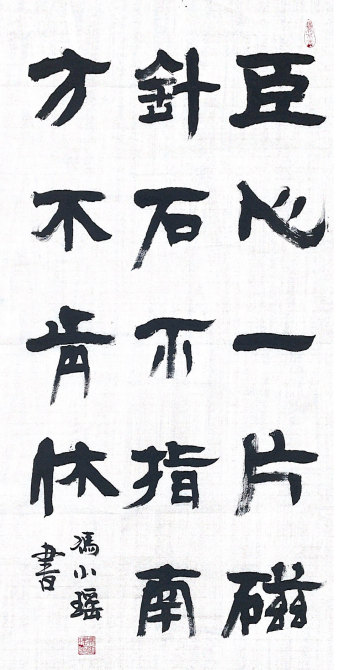 臣心一片磁
針石不指南
方不肯休
馮小瑶
書